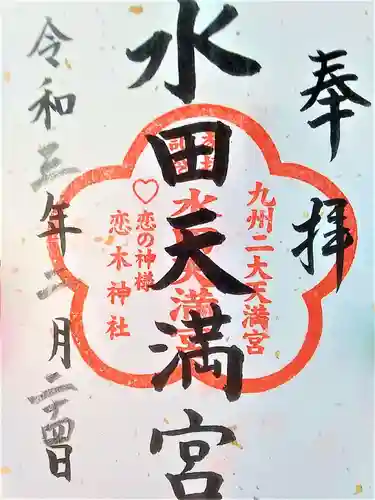 奉拝
水田天満宮
九州二大天満宮
水田天満宮
♡恋の神様
恋木神社
令和三年二月二十四日